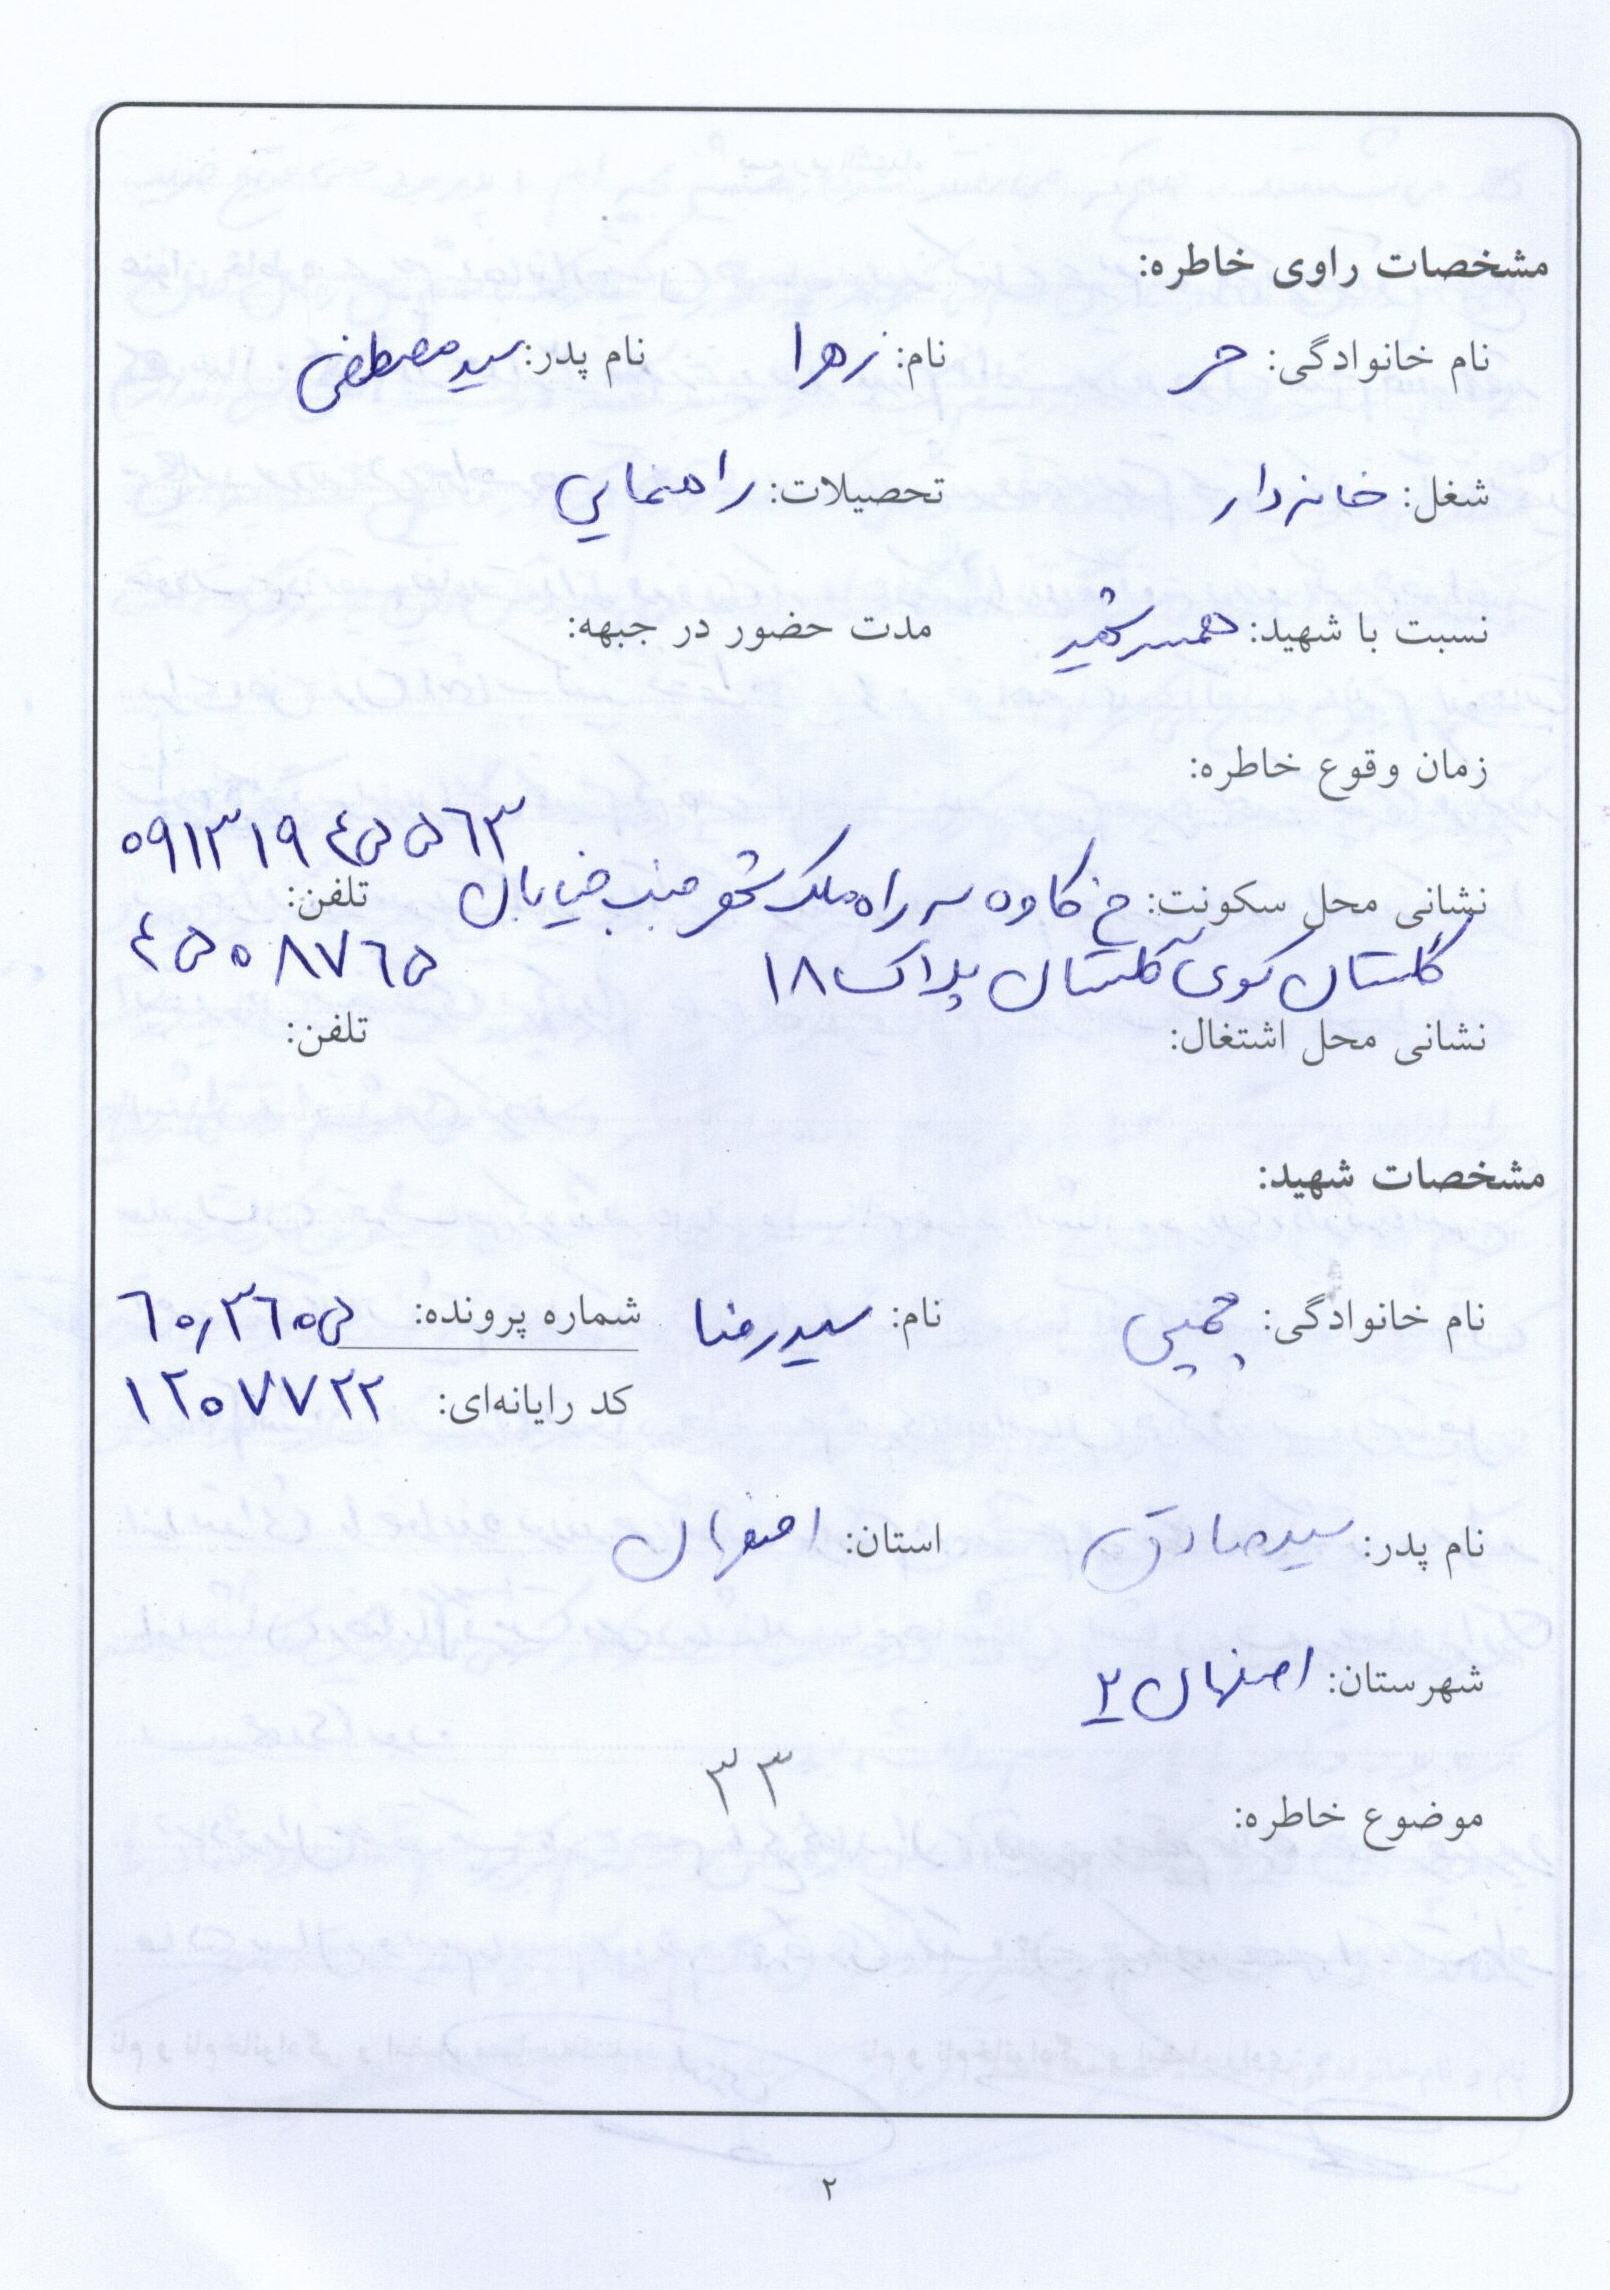 مشخصات راوی خاطره:
نام خانوادگی: حر نام: زهرا نام پدر: سید مصطفی
شغل: خانه دار تحصیلات: راهنمایی
نسبت با شهید: همسر شهید مدت حضور در جبهه:
زمان وقوع خاطره:
۰۹۱۳۱۹۴۵۵۶۳
نشانی محل سکونت: خ کاوه سه راه ملک شهر جنب خیابان تلفن:
گلستان کوی گلستان پلاک ۱۸ ۴۵۰۸۷۶۵
نشانی محل اشتغال: تلفن:
مشخصات شهید:
نام خانوادگی: نام: سیدرضا شماره پرونده: ۶۰,۳۶۰۵
کد رایانه‌ای: ۱۲۰۷۷۲۲
نام پدر: سید صادق استان: اصفهان
شهرستان: اصفهان ۲
۳۳
موضوع خاطره:
۲